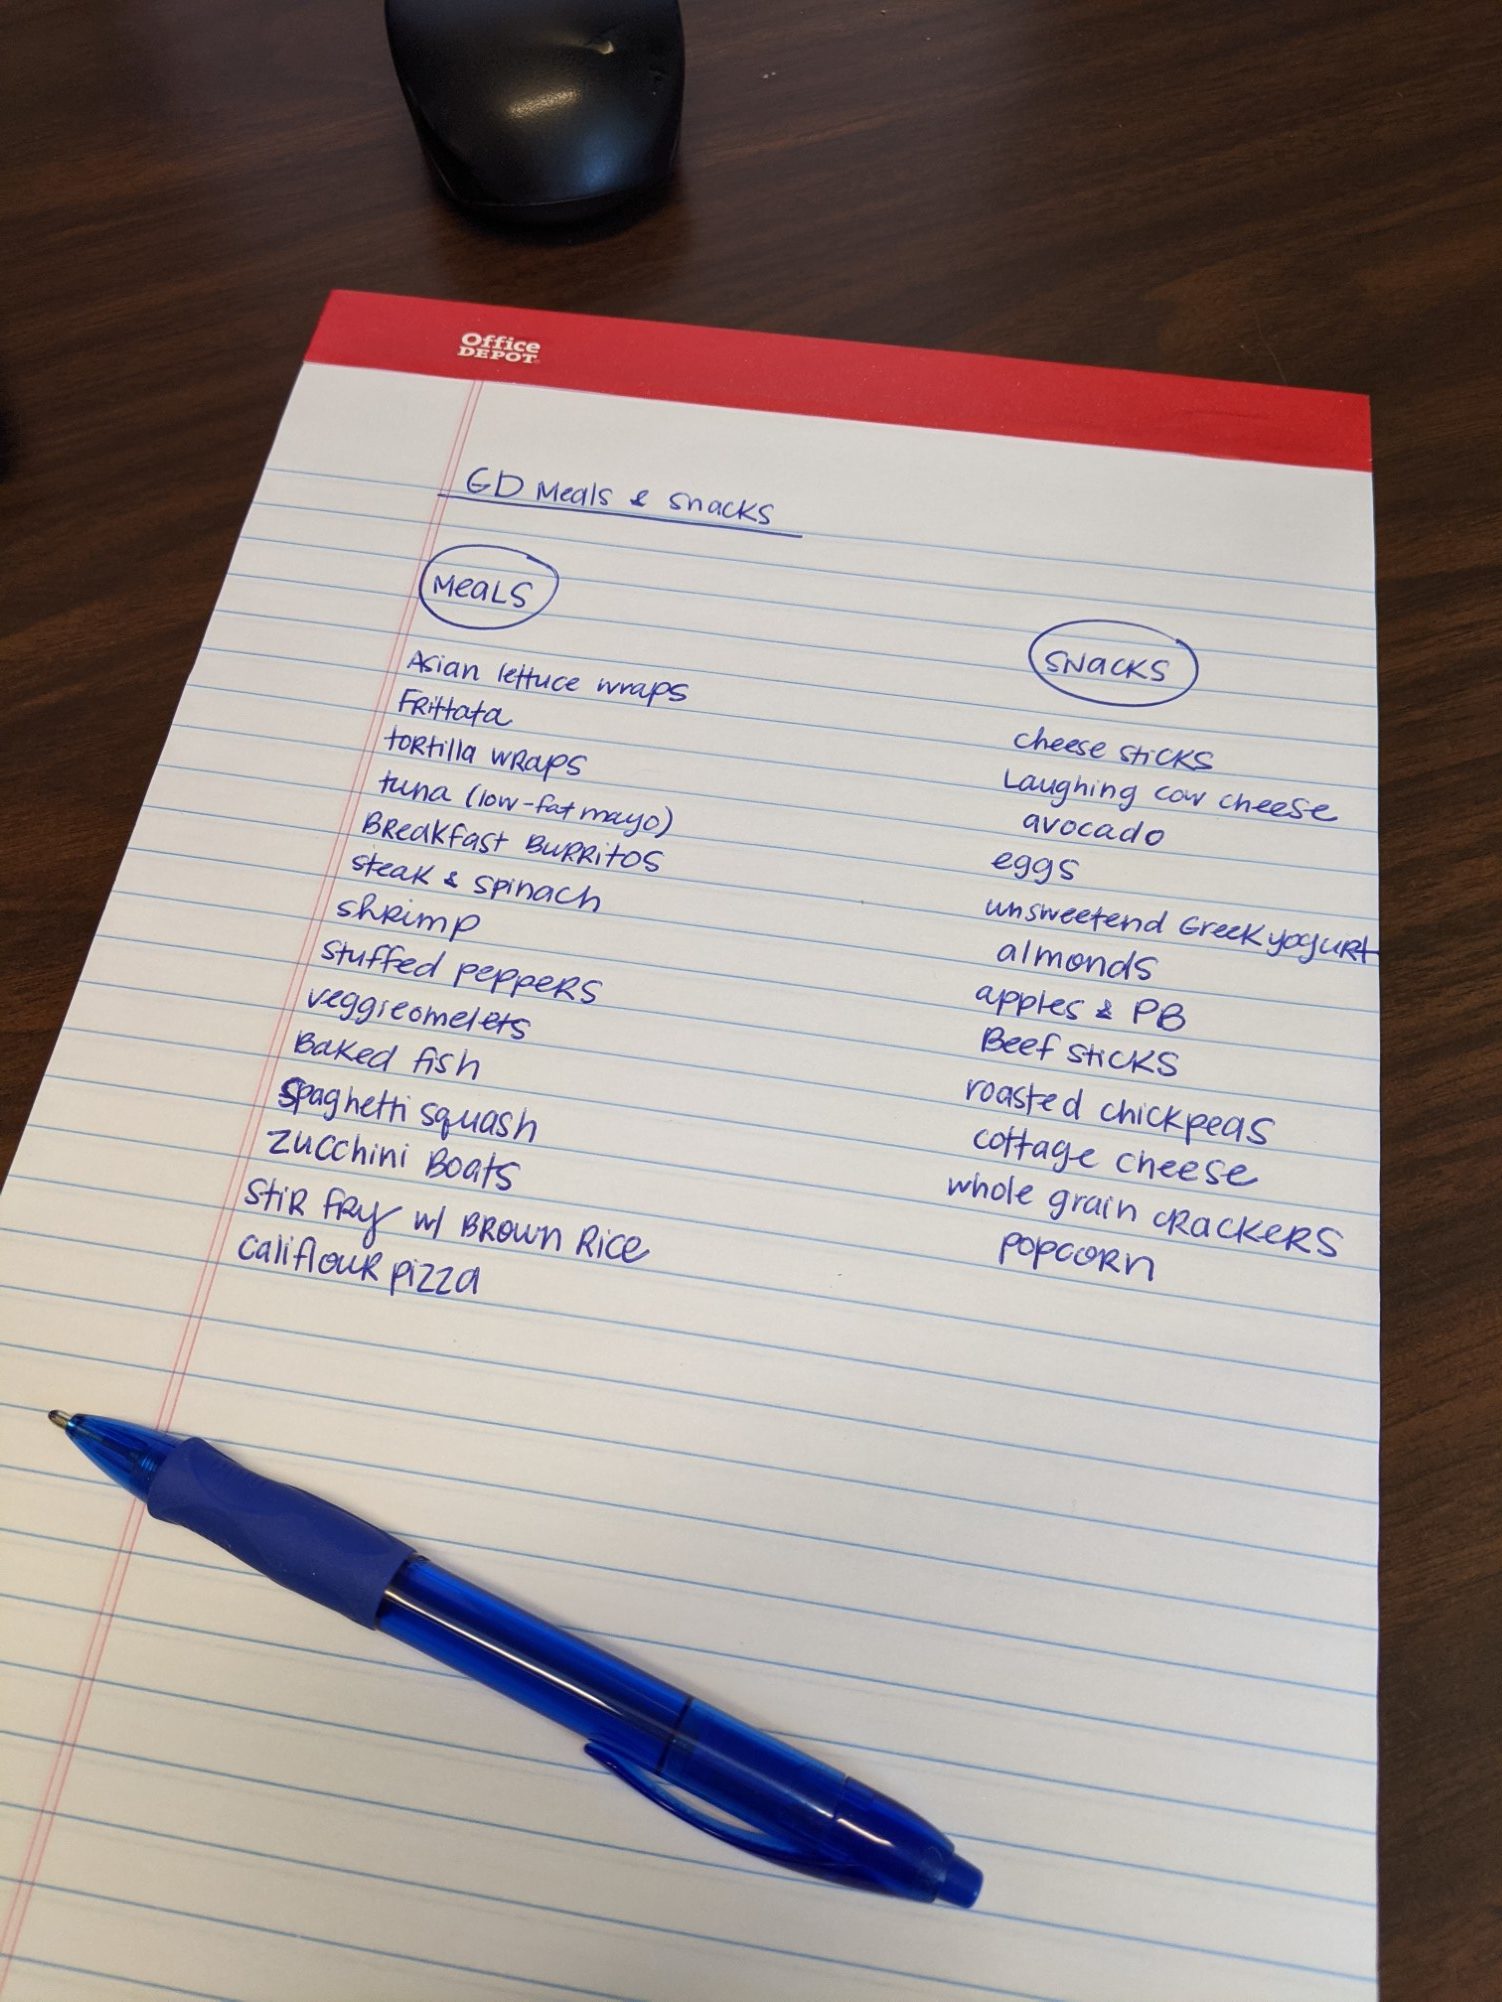 Office
DEPOT
GD Meals & snacks
MeaLS
Asian lettuce wraps
FRittata
tortilla wraps
tuna (low-fat mayo)
BReakfast BuRRitos
steak & spinach
shRimp
stuffed peppeRS
veggieomelets
Baked fish
spaghetti squash
zucchini Boats
StiR fRy w/ BRown Rice
califlouR pizza
SNacKS
cheese sticks
Laughing cow cheese
avocado
eggs
unsweetend Greek yoguRt
almonds
apples & PB
Beef sticks
roasted chickpeas
cottage cheese
whole grain cRackeRS
popcoRn